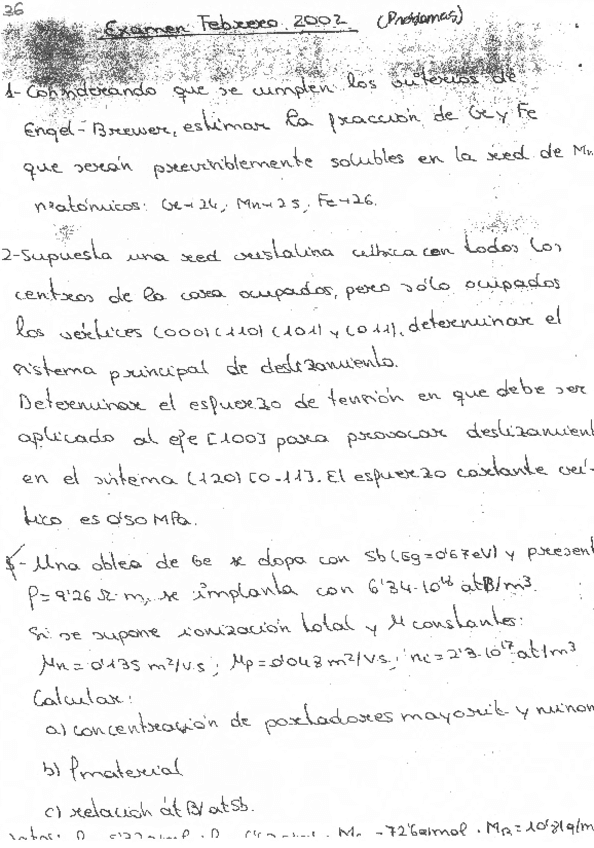 36
Examen Febrero 2002 (Problemas)
1- Considerando que se cumplen los criterios de
Engel-Brewer, estimar la fracción de Cr y Fe
que serán previsiblemente solubles en la red de Mn
nºatómicos: Cr→24, Mn→25, Fe→26.
2-Supuesta una red cristalina cúbica con todos los
centros de la cara ocupados, pero sólo ocupados
los vértices (000) (110) (101) y (011), determinar el
sistema principal de deslizamiento.
Determinar el esfuerzo de tensión en que debe ser
aplicado al eje [100] para provocar deslizamient
en el sistema (120) [0-11]. El esfuerzo cortante crí-
tico es 0'50 MPa.
- Una oblea de Ge se dopa con Sb (Eg=0'67eV) y present
ρ=9'26 Ω·m, se implanta con 6'34·10 atB/m³.
Si se supone ionización total y μ constantes:
μn=0'135 m²/V.s ; μp=0'048 m²/V.s ; ni=2'3·10¹⁷ at/m³
Calcular:
a) concentración de portadores mayorit. y minor
b) ρmaterial
c) relación át B/atSb.
=72'6g/mol · MB=10'81g/m